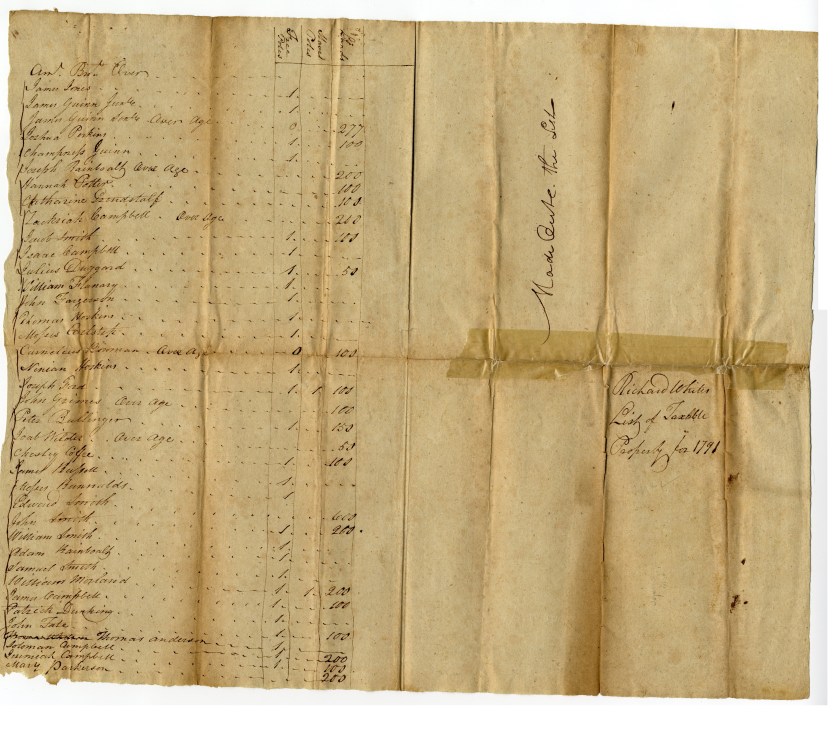 Free Poles
Land
Amt. Brt. Over
James Jones 1
James Guinn Junr. 1
James Guinn Senr. Over Age 0 277
Joshua Perkins 1 100
Champness Guinn 1
Joseph Rainboalt Over Age 200
Hannah Potter 100
Catharine Grindstaff 100
Zachriah Campbell Over Age 200
Jacob Smith 1 100
Isaac Campbell 1
Julius Duggard 1 50
William Flanary 1
John Fargerson 1
Thomas Hoskins 1
Moses 1
Cornelius Bowman Over Age 0 100
Ninian Hoskins 1
Joseph Ford 1 1 100
John Grimes Over Age 100
Peter Bullinger 1 150
Joab Over Age 50
Chesley 1 100
James Russell 1
Moses 1
Edward Smith
John Smith 400
William Smith 1 200
Adam Rainboalt 1
Samuel Smith 1
William Morland 1
James Campbell 1 1 200
Patrick Dunking 1 100
John Tate 1
Thomas Anderson 1 100
Soloman Campbell 1
Jeremiah Campbell 1 200
Mary Parkerson 1 100
200
Made Oute the List
Richard White's
List of Taxable
Property for 1791